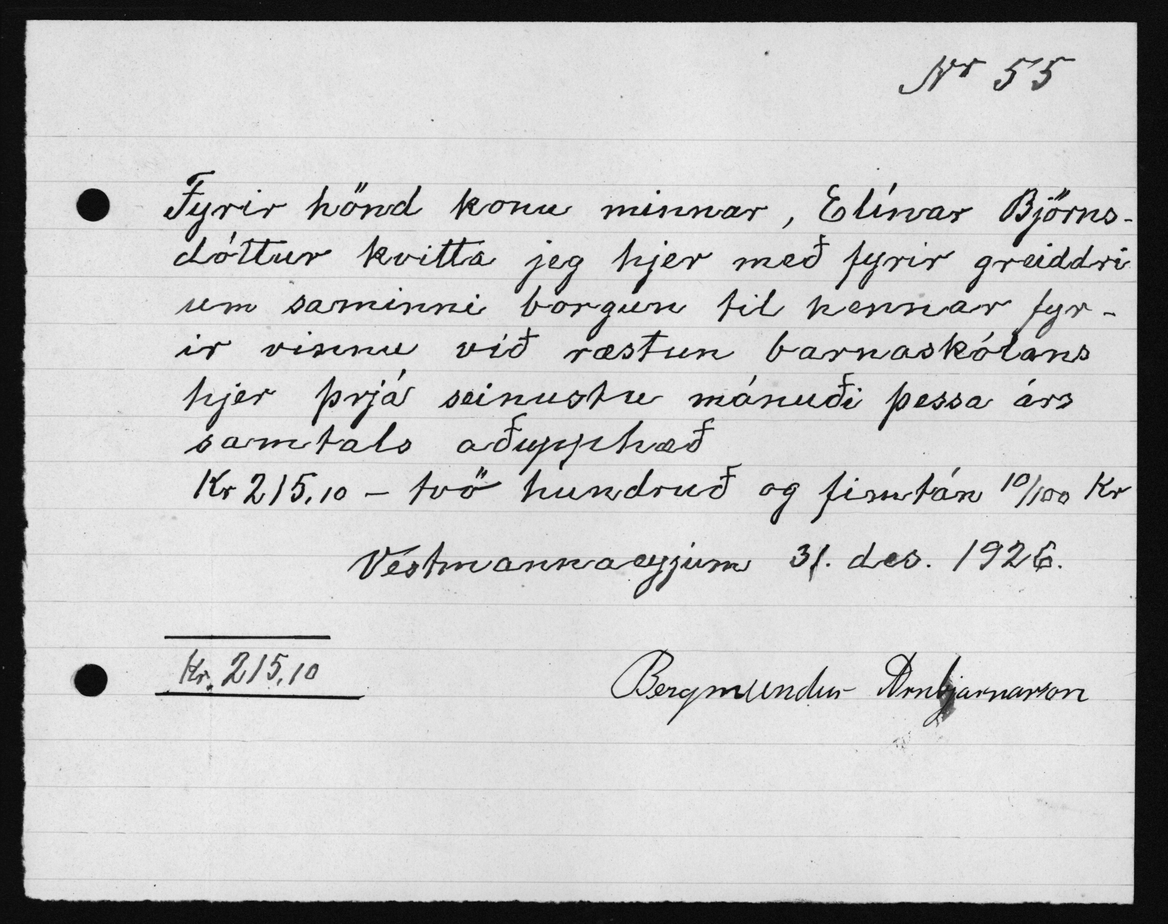 Nr 55
Fyrir hönd konu minnar, Elínar Björns-
dóttur kvitta jeg hjer með fyrir greiddri
um saminni borgun til hennar fyr-
ir vinnu við ræstun barnaskólans
hjer þrjá seinustu mánuði þessa árs
samtals aðupphæð
Kr 215,10 – tvö hundruð og fimtán 10/100 Kr
Vestmannaeyjum 31. des. 1926.
Kr. 215,10
Bergmundur Arnbjarnarson